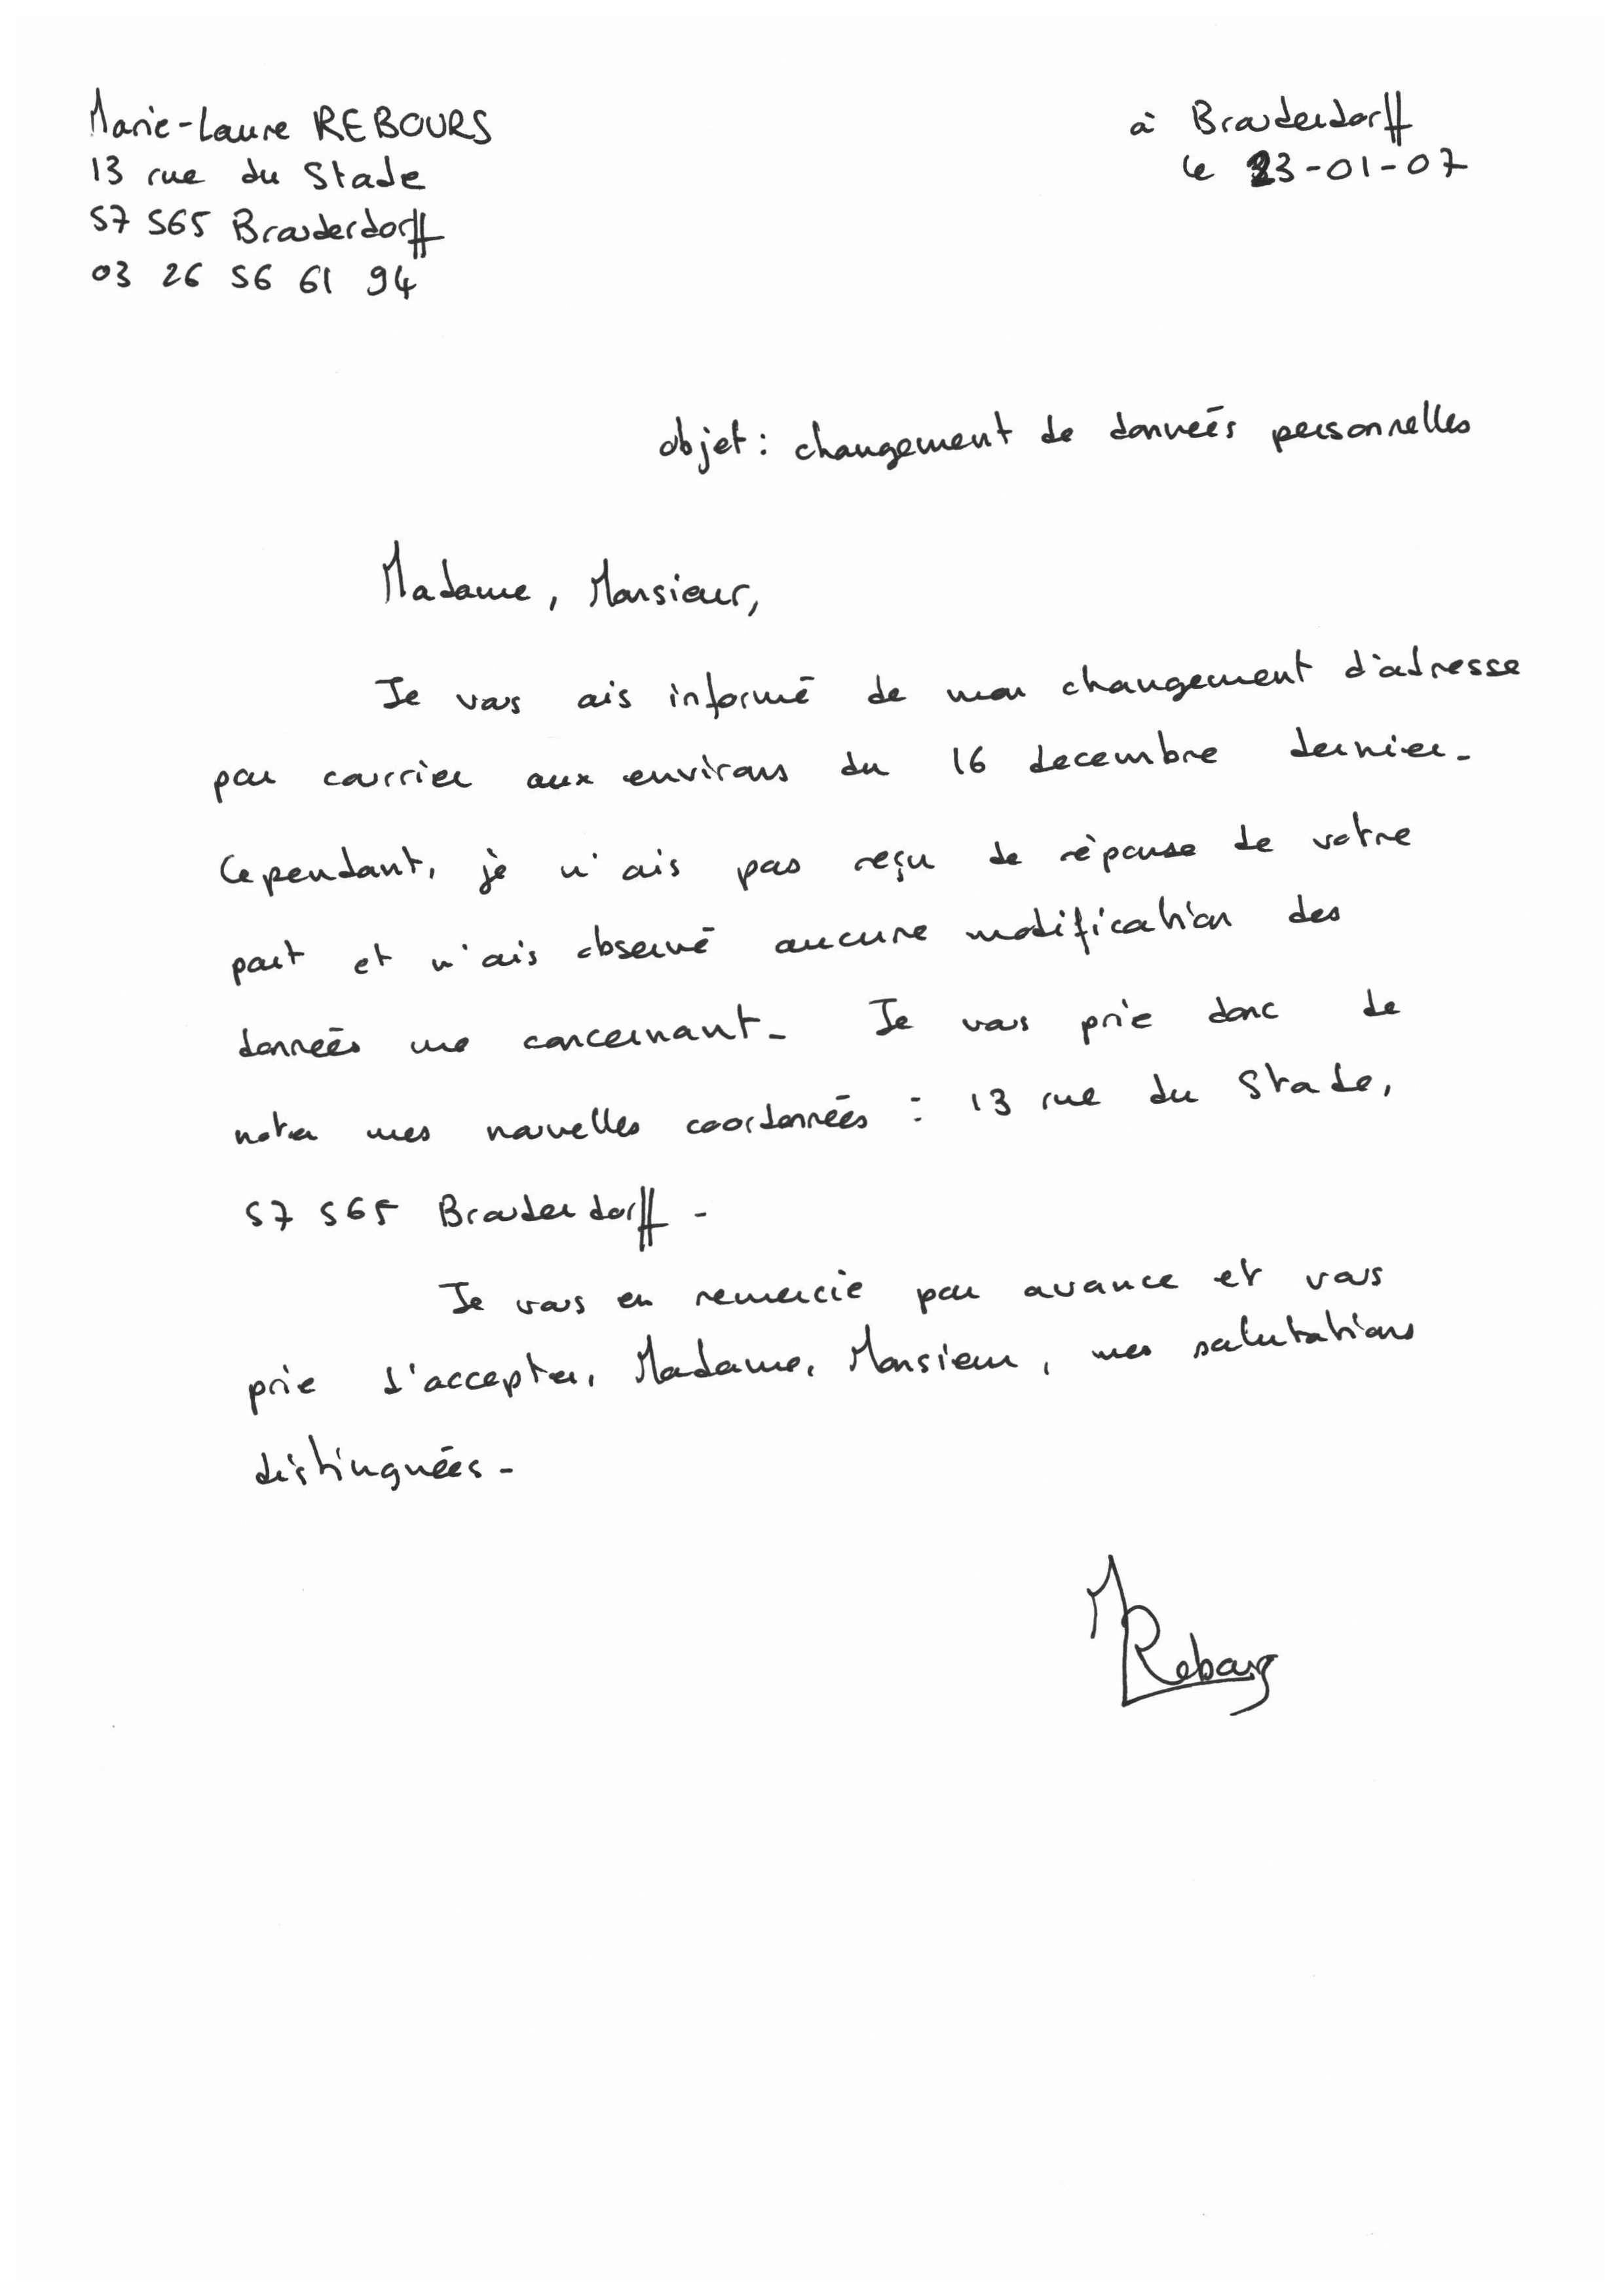 Marie-Laure REBOURS
13 rue du Stade
57 565 Brouderdorff
03 26 56 61 94
à Brouderdorff
le 23-01-07
objet : changement de données personnelles
Madame, Monsieur,
Je vous ais informé de mon changement d'adresse
par courrier aux environs du 16 decembre dernier.
Cependant, je n'ais pas reçu de réponse de votre
part et n'ais observé aucune modification des
données me concernant. Je vous prie donc de
noter mes nouvelles coordonnées : 13 rue du Stade,
57 565 Brouderdorff.
Je vous en remercie par avance et vous
prie d'accepter, Madame, Monsieur, mes salutations
distinguées.
MRebours